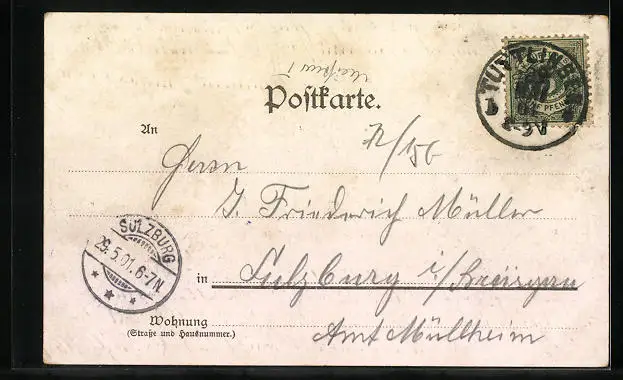 Postkarte.
TUTTLINGEN
FÜNF PFENNIG
An
Herrn
J. Friederich Müller
SULZBURG
29.5.01.6-7N.
in Sulzburg i/Breisgau
Wohnung
(Straße und Hausnummer.)
Amt Müllheim